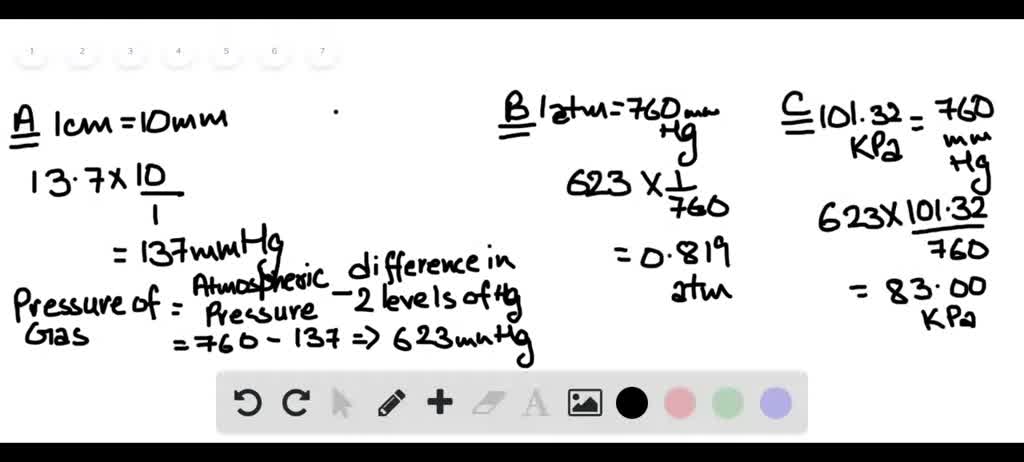 1 2 3 4 5 6 7
A 1cm = 10mm
13.7 × 10
1
= 137 mmHg
Pressure of Gas = Atmospheric Pressure − difference in 2 levels of Hg
= 760 − 137 => 623 mmHg
B 1 atm = 760 mm Hg
623 × 1
760
= 0.819
atm
C 101.32 KPa = 760 mm Hg
623 × 101.32
760
= 83.00
KPa
A